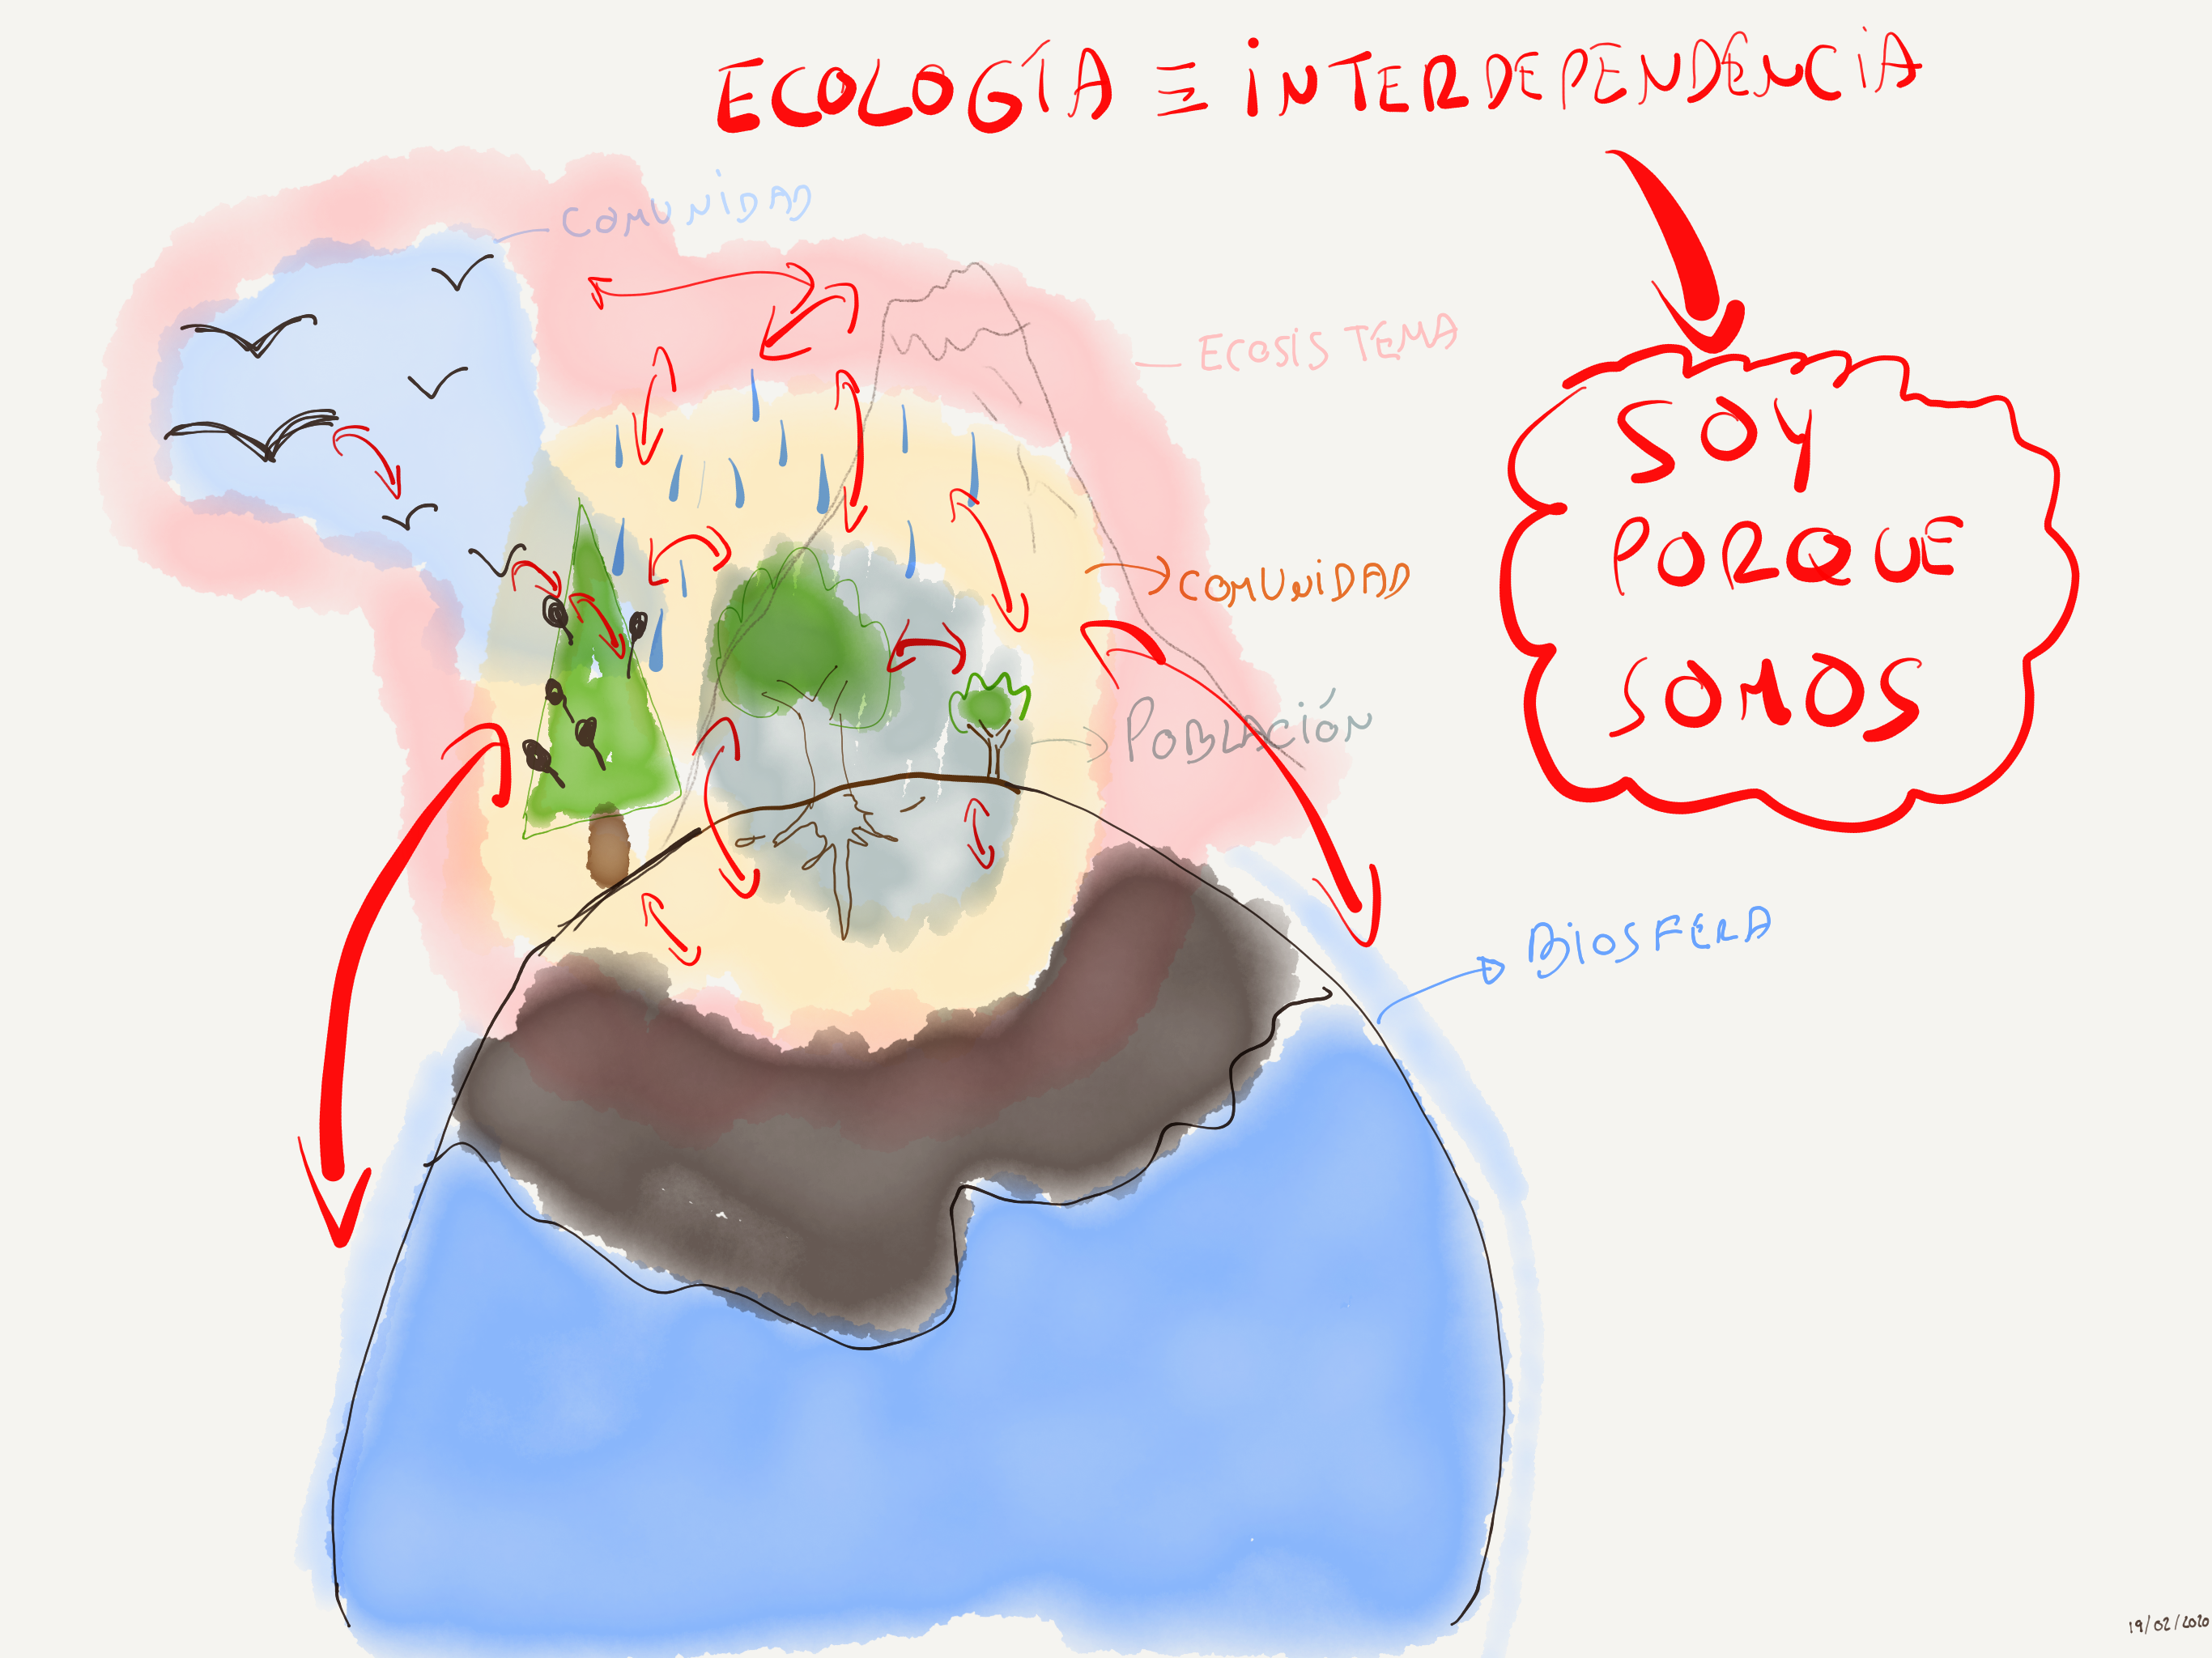 ECOLOGÍA ≡ iNTERDEPENDENCiA
COMUNiDAD
ECOSiSTEMA
SOY
PORQUE
SOMOS
COMUNiDAD
POBLACIÓN
BiOSFERA
19/02/2020